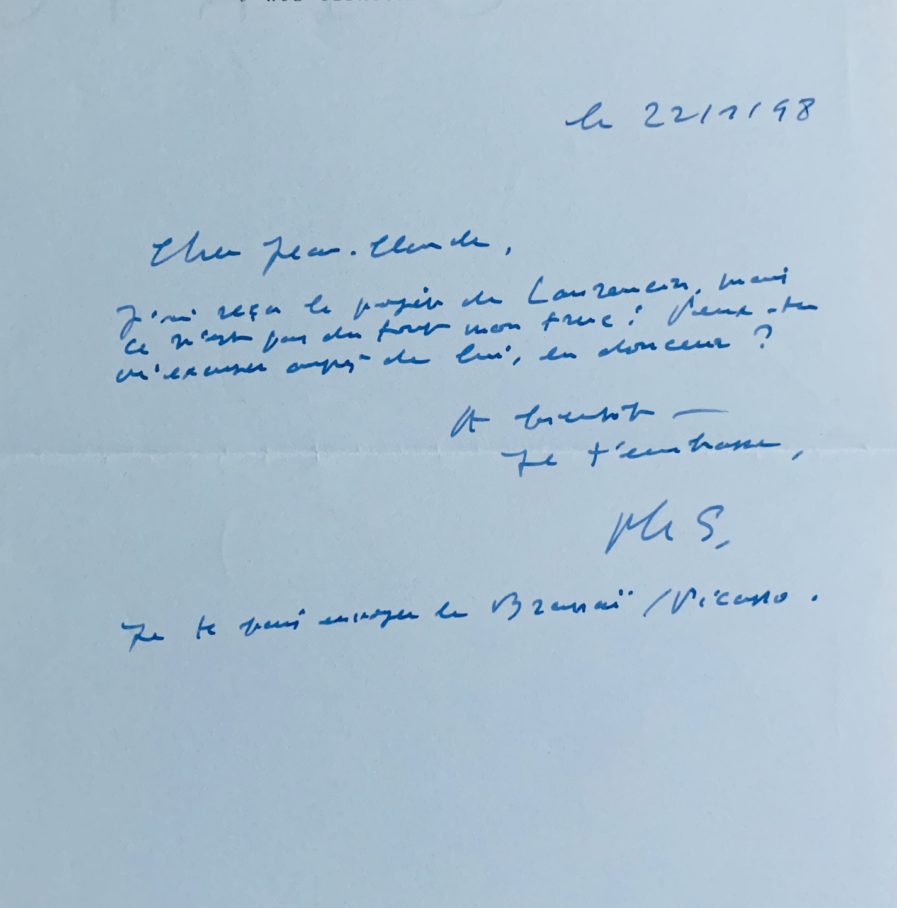 le 22/1/98
Cher Jean-Claude,
J'ai reçu le projet de Laurencin, mais
ce n'est pas du tout mon truc ! Peux-tu
m'excuser auprès de lui, en douceur ?
A bientôt —
Je t'embrasse,
Ph S.
Je te fais envoyer le Brassaï / Picasso.